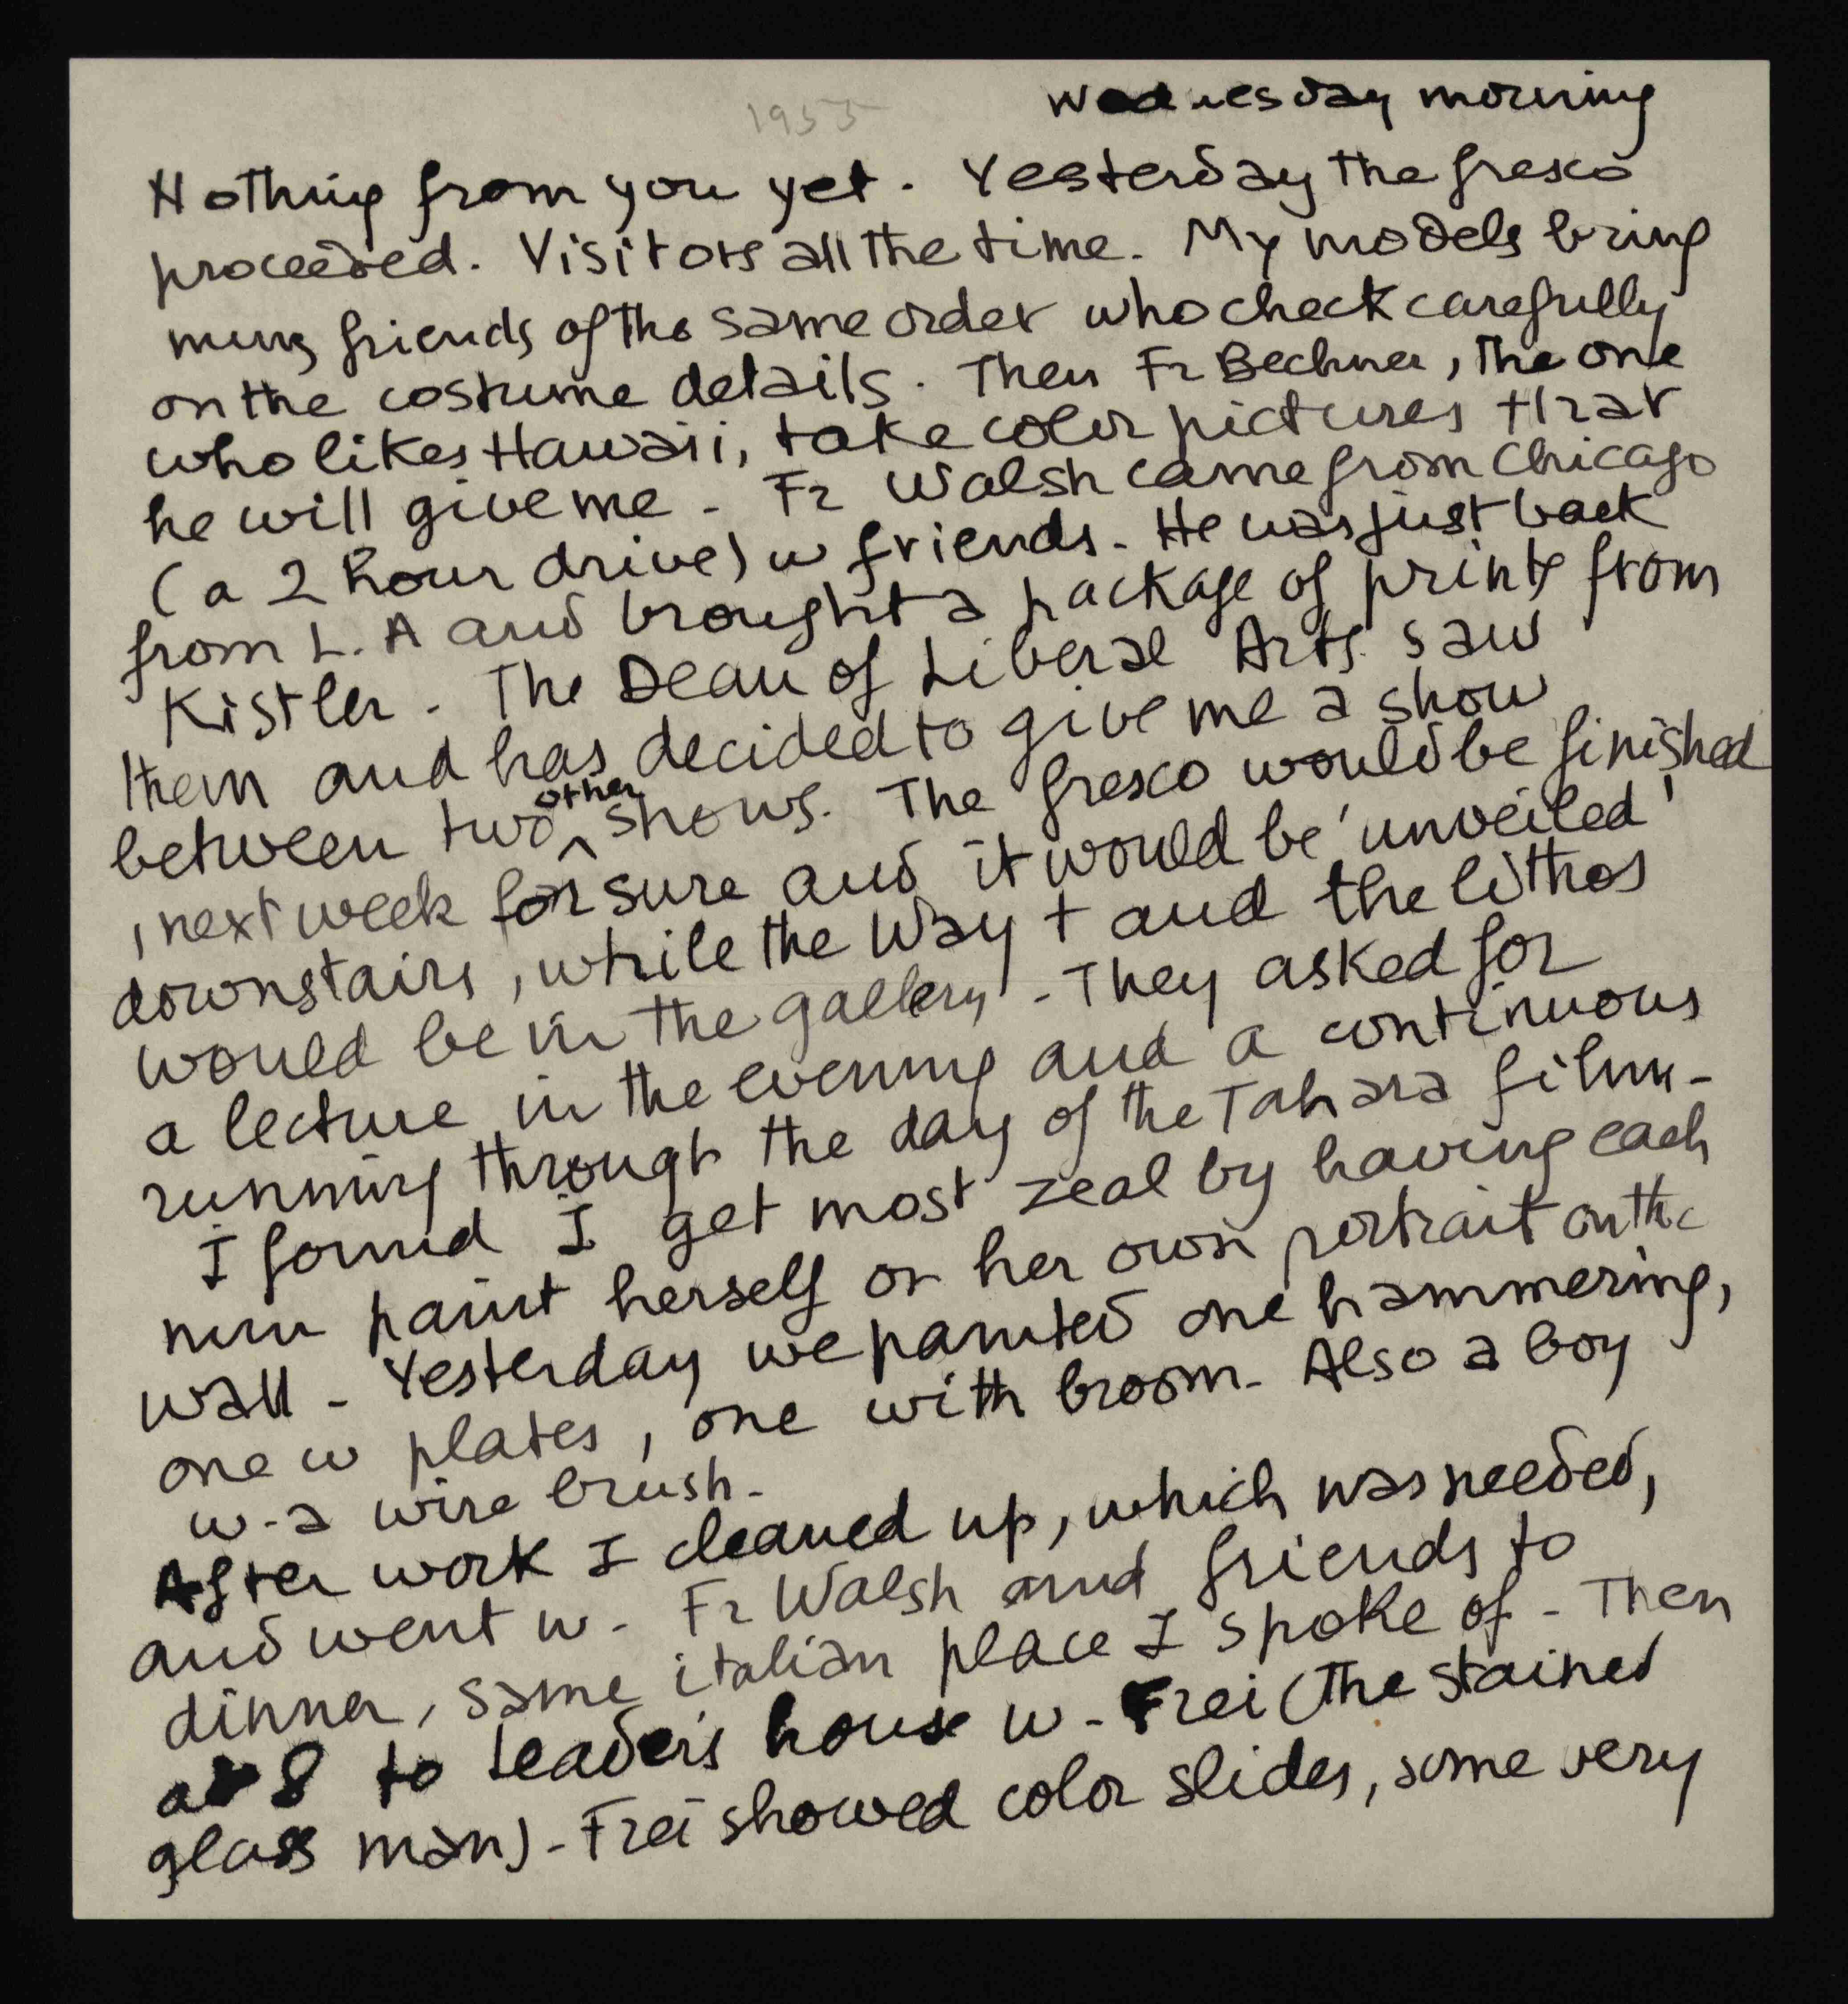 1955
Wednesday morning
Nothing from you yet. Yesterday the fresco
proceeded. Visitors all the time. My models bring
nuns friends of the same order who check carefully
on the costume details. Then Fr Bechner, the one
who likes Hawaii, take color pictures that
he will give me - Fr Walsh came from Chicago
(a 2 hour drive) w friends. He was just back
from L. A and brought a package of prints from
Kistler. The Dean of Liberal Arts saw
them and has decided to give me a show
between two other shows. The fresco would be finished
next week for sure and it would be 'unveiled'
downstairs, while the Way + and the lithos
would be in the gallery - They asked for
a lecture in the evening and a continuous
running through the day of the Tahara film -
I found I get most zeal by having each
nun paint herself or her own portrait on the
wall - Yesterday we painted one hammering,
one w plates, one with broom - Also a boy
w. a wire brush -
After work I cleaned up, which was needed,
and went w - Fr Walsh and friends to
dinner, same italian place I spoke of - Then
at 8 to Leader's house w - Frei (the stained
glass man) - Frei showed color slides, some very